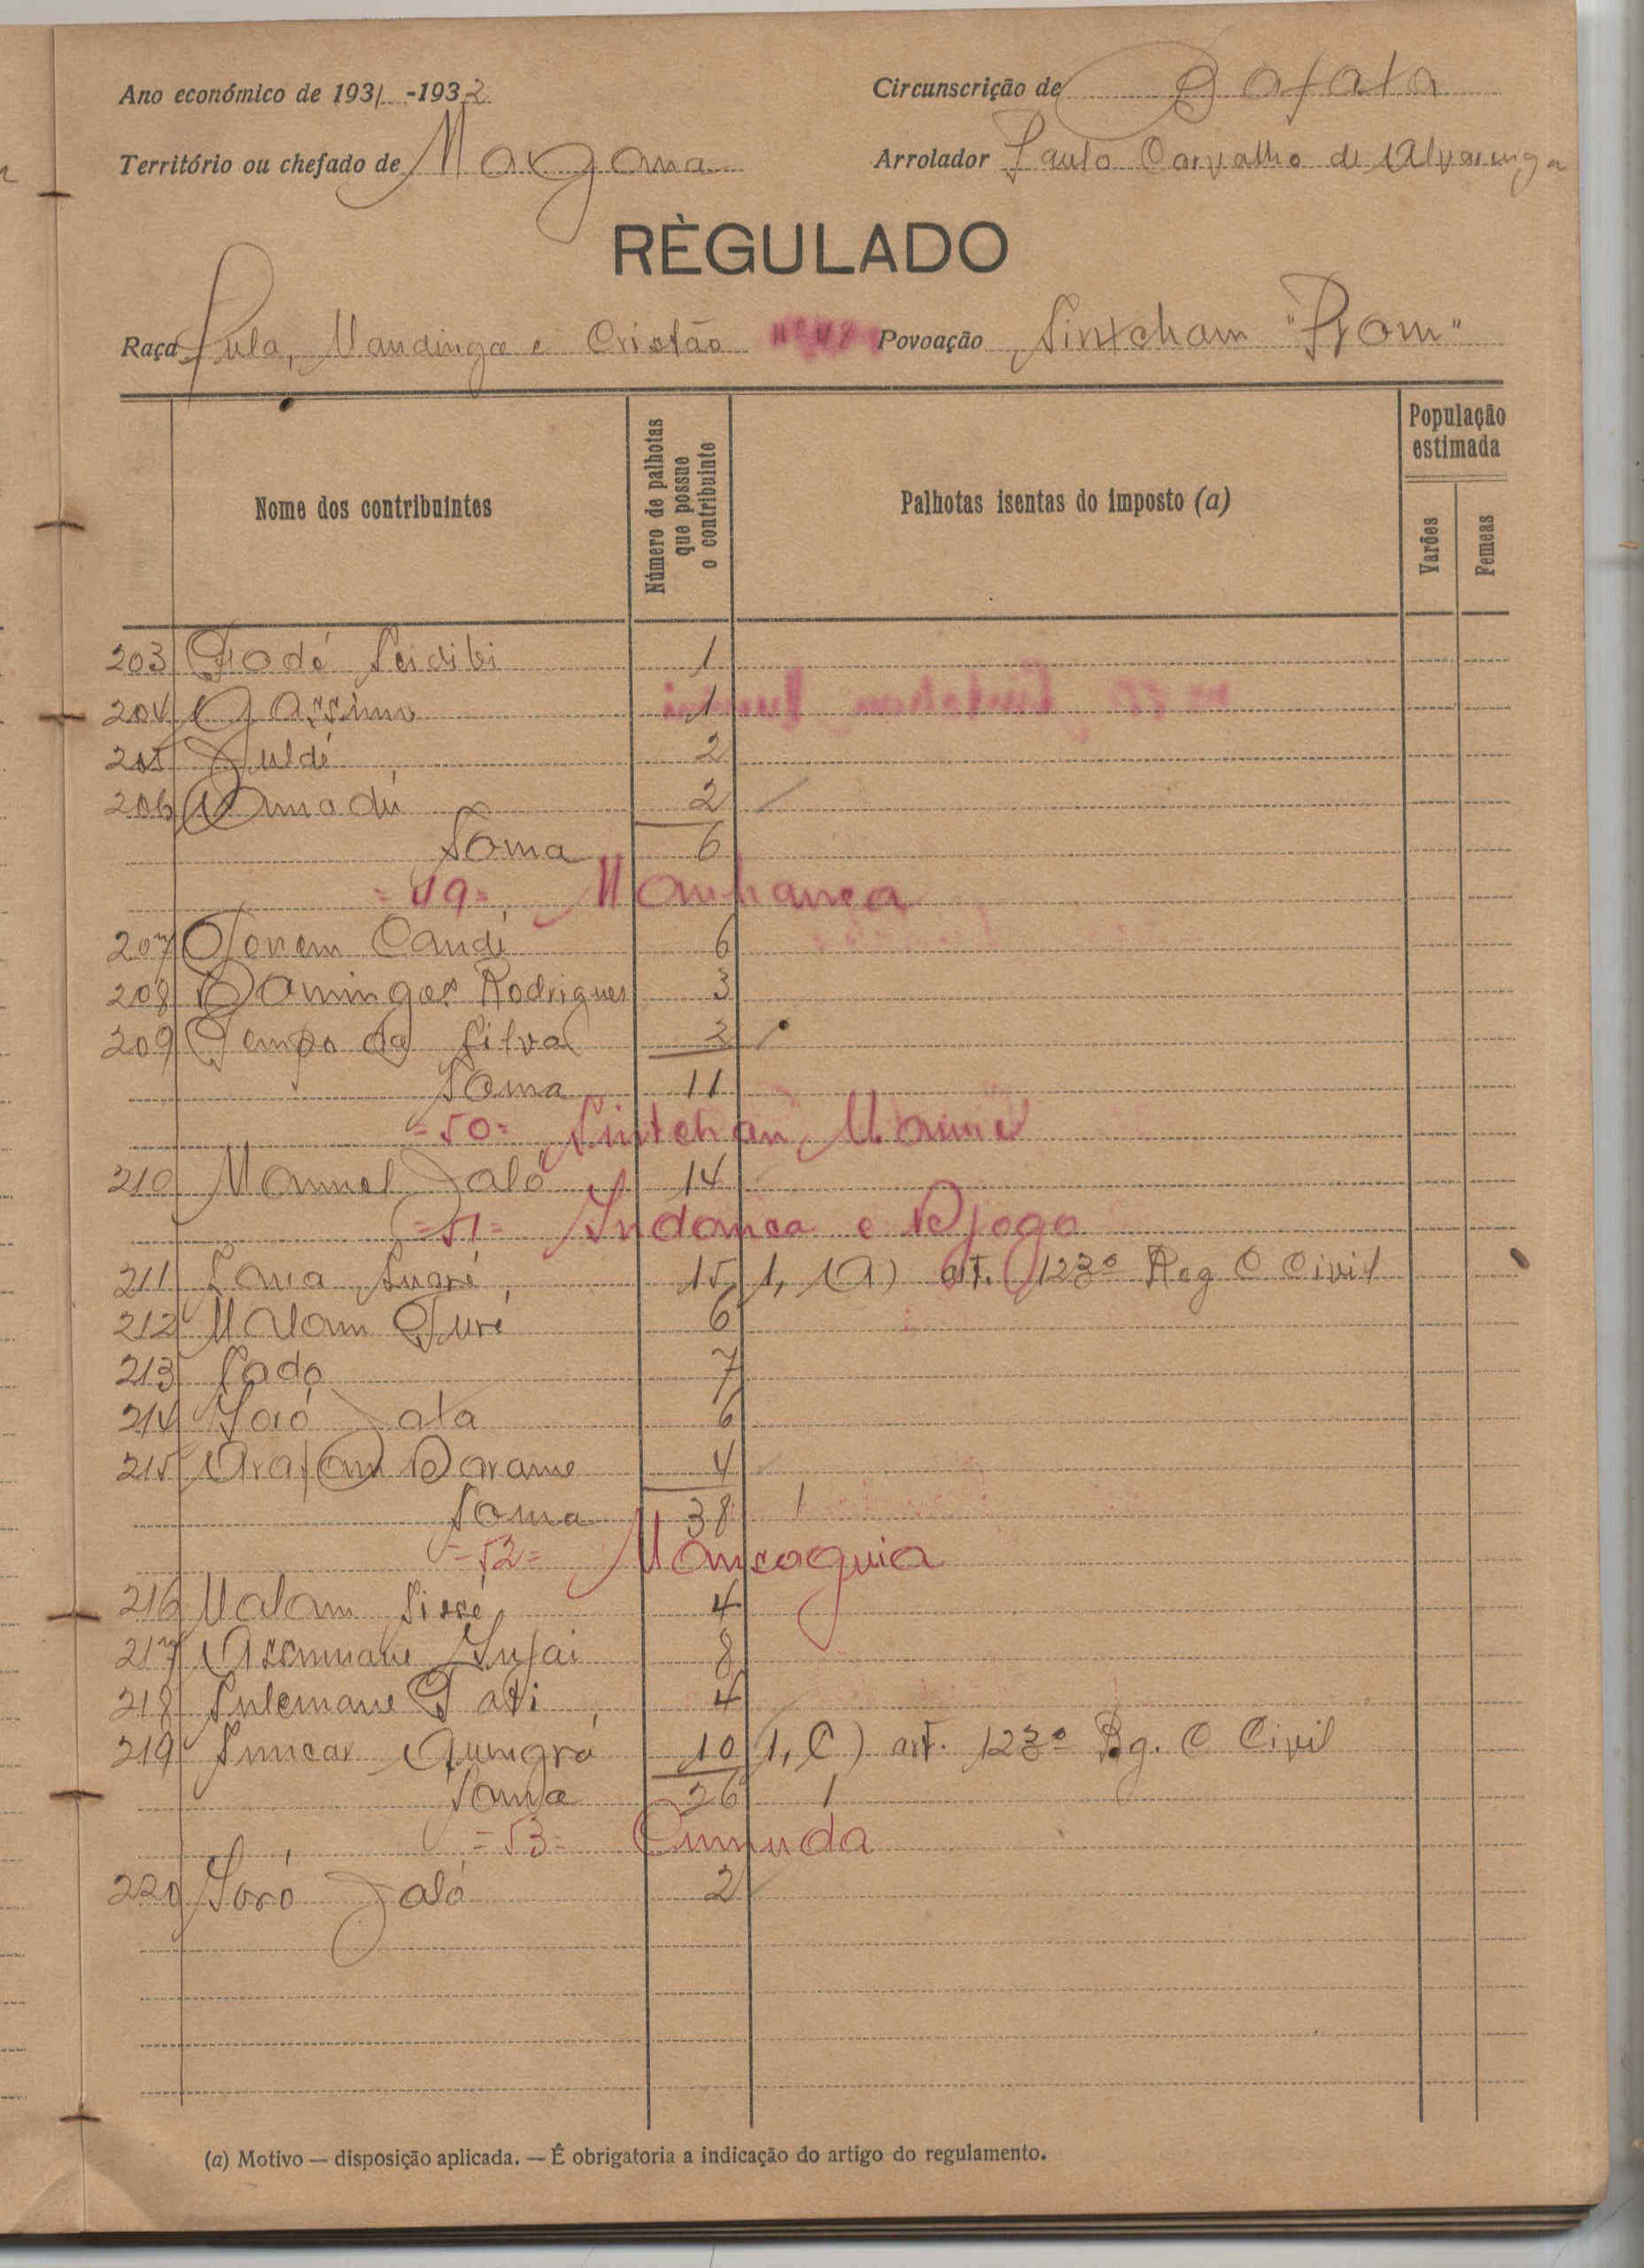 Ano económico de 1931-1932 Circunscrição de Bafata
Território ou chefado de Arrolador Paulo Carvalho de Alvarenga
RÈGULADO
Raça Fula, Mandinga e Cristão Nº 48 Povoação Sintcham "Prom"
Nome dos contribuintes
Número de palhotas que possue o contribuinte
Palhotas isentas do imposto (a)
População estimada
Varões
Femeas
203 Fodé Seidibi 1
204 1
205 Juldé 2
206 Amadú 2
Soma 6
=49= Manhanca
207 Candi 6
208 Domingos Rodrigues 3
209 Tempo da Silva 2
Soma 11
=50= Sintchan Mamé
210 Mamel Jaló 14
=51= Indanca e Djogo
211 Suaré 15 1, (A) art. 123º Reg C Civil
212 Malam Turé 6
213 Sado 7
214 Ioró Jala 6
215 Arafam Darame 4
Soma 38 1
=52= Mancoquia
216 Malam Sissé 4
217 Injai 8
218 Sulemane Tati 4
219 10 1, C) art. 123º Rg. C Civil
Soma 26 1
=53= Cumuda
220 Ioró Jaló 2
(a) Motivo — disposição aplicada. — É obrigatoria a indicação do artigo do regulamento.